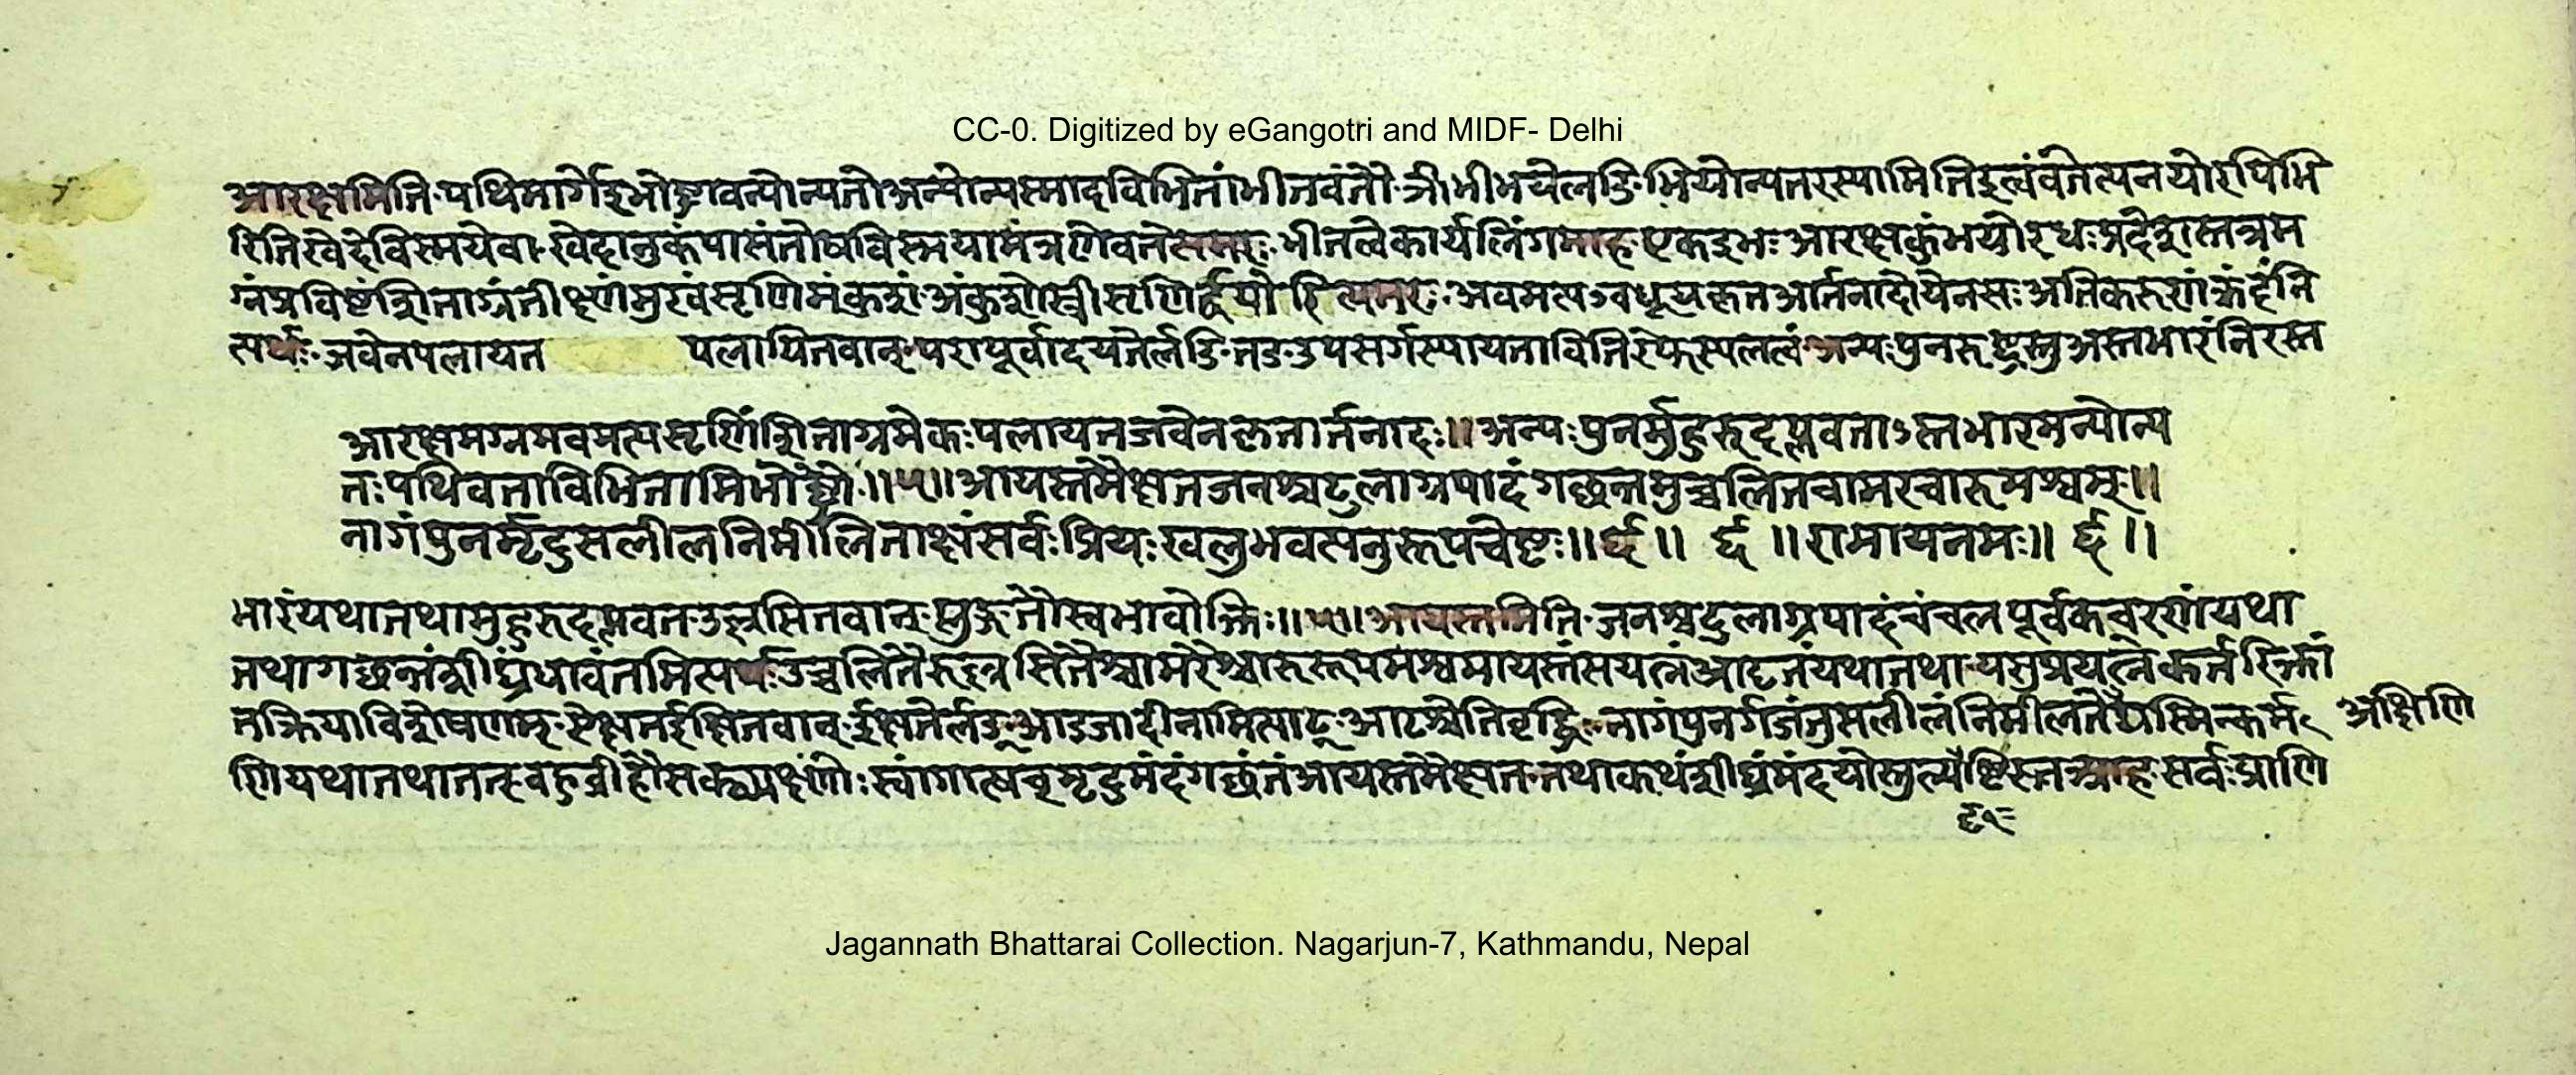 CC-0. Digitized by eGangotri and MIDF- Delhi
आरक्षमिति पथिमार्गेइभोष्ट्रावन्योन्यतोअन्योन्यस्मादविभितांभीतवंतौ ञीभीभयेलङि भियोन्यतरस्यामितिइत्वंवतेत्यनयोरपिभि
रितिखेदेविस्मयेवा खेदानुकंपासंतोषविस्मयामंत्रणेवतेत्यमरः भीतत्वेकार्यलिंगमाह एकइभः आरक्षकुंभयोरधःप्रदेशस्तत्रम
ग्नंप्रविष्टंशितााग्रंतीक्ष्णमुखंसृणिमंकुशं अंकुशोस्त्रीसृणिर्द्वयोरित्यमरः अवमत्यऽवधूयकृतआर्तनादोयेनसः अतिकरुणंक्रंदन्नि
त्यर्थः जवेनपलायत पलायितवान् परापूर्वादयतेर्लङि तङ उपसर्गस्यायतावितिरेफस्यलत्वं अन्यःपुनरुष्ट्रस्तुअस्तभारंनिरस्त
आरक्षमग्नमवमत्यसृणिंशिताग्रमेकःपलायतजवेनकृतार्तनादः॥ अन्यःपुनर्मुहुरुदप्लवताऽस्तभारमन्योन्य
तःपथिवताविभितामिभोष्ट्रौ ॥५॥ आयस्तमैक्षतजनश्चटुलाग्रपादंगच्छन्तमुच्चलितचामरचारुमश्वम् ॥
नागंपुनर्मृदुसलीलनिमीलिताक्षंसर्वःप्रियःखलुभवत्यनुरूपचेष्टः॥ ६ ॥ ६ ॥ रामायनमः॥ ६ ॥
भारंयथातथामुहुरुदप्लवत उत्प्लसितवान् प्लुङ्गतौस्वभावोक्तिः॥५॥ आयस्तमिति जनश्चटुलाग्रपादंचंचलपूर्वकचरणंयथा
तथागच्छन्तंशीघ्रंधावंतमित्यर्थः उच्चलितैरुल्लसितैश्चामरैश्चारुरूपमश्वमायस्तंसयत्नंआदृतंयथातथा यसुप्रयत्नेकर्तरिक्तां
तक्रियाविशेषणम् ऐक्षतईक्षितवान् ईक्षतेर्लङ् आडजादीनामित्याट् आटश्चेतिवृद्धिः नागंपुनर्गजंतुसलीलंनिमीलतेयस्मिन्कर्म अक्षिणि
णियथातथातत् बहुव्रीहौसक्थ्यक्ष्णोःस्वांगात्षच्मृदुमंदंगच्छंतंआयस्तमैक्षत तथाकथंशीघ्रमंदयोस्तुल्येष्टिस्तत्राह सर्वःप्राणि
Jagannath Bhattarai Collection. Nagarjun-7, Kathmandu, Nepal